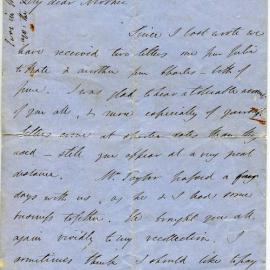 My dear Mother
Since I last wrote we
have received two letters one from Julia
to Kate & another from Charles - both of
June. I was glad to hear a tolerable account
of you all, & more especially of yourself
Letters come at shorter dates than they
used - still you appear at a very great
distance. Mr Taylor passed a few
days with us, as he & I had some
together. He brought you all
again vividly to my recollection. I
sometimes think I should like to pay